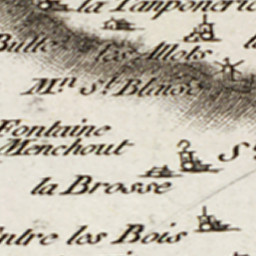 la Tanponerie
Bulle les Allots
M.n S.t Blaise
Fontaine
Menchout
la Brosse
Entre les Bois